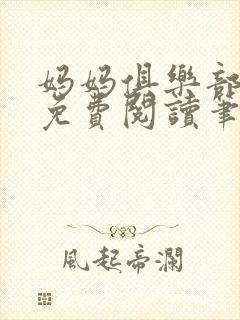 妈妈俱樂部
免費閱讀筆
風起帝瀾